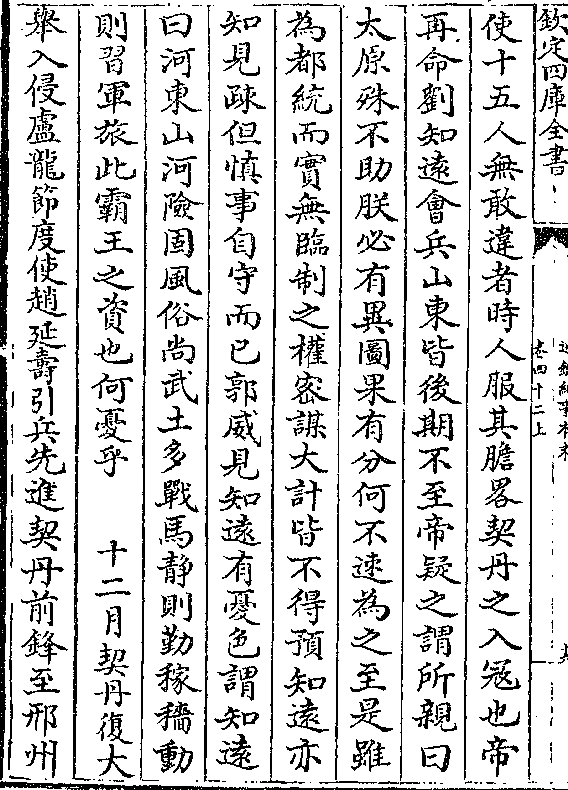 欽定四庫全書
卷四十二上
使十五人無敢違者時人服其膽畧契丹之入寇也帝
再命劉知遠會兵山東皆後期不至帝疑之謂所親曰
太原殊不助朕必有異圖果有分何不速為之至是雖
為都統而實無臨制之權密謀大計皆不得預知遠亦
知見疎但慎事自守而已郭威見知遠有憂色謂知遠
曰河東山河險固風俗尚武士多戰馬静則勤稼穡動
則習軍旅此霸王之資也何憂乎　十二月契丹復大
舉入侵盧龍節度使趙延壽引兵先進契丹前鋒至邢州